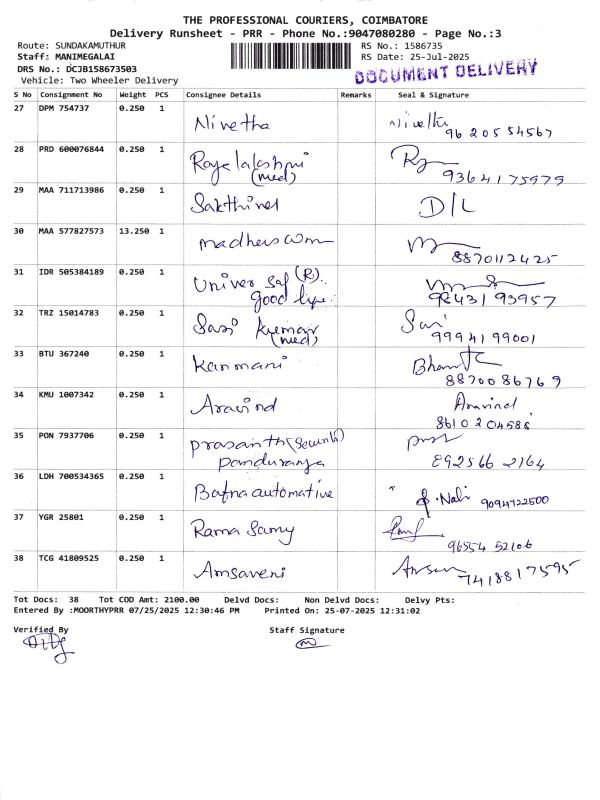 THE PROFESSIONAL COURIERS, COIMBATORE
Delivery Runsheet - PRR - Phone No.:9047080280 - Page No.:3
Route: SUNDAKAMUTHUR RS No.: 1586735
Staff: MANIMEGALAI RS Date: 25-Jul-2025
DRS No.: DCJB158673503
Vehicle: Two Wheeler Delivery DOCUMENT DELIVERY
S No Consignment No Weight PCS Consignee Details Remarks Seal & Signature
27 DPM 754737 0.250 1 Nivetha Nivetha
96 205 54567
28 PRD 600076844 0.250 1 Rajalakshmi
(med) 9364175979
29 MAA 711713986 0.250 1 Sakthivel D/L
30 MAA 577827573 13.250 1
8870112425
31 IDR 505384189 0.250 1 Universal (R)
good life 98431 93957
32 TRZ 15014783 0.250 1 Sasi kumar
(med) 9994199001
33 BTU 367240 0.250 1 Kanmani
8870086769
34 KMU 1007342 0.250 1 Aravind Aravind
8610204585
35 PON 7937706 0.250 1 prasanth (Security)
panduranga 892566 2164
36 LDH 700534365 0.250 1 Bafna automative
9094722500
37 YGR 25801 0.250 1 Rama Samy
96554 52106
38 TCG 41809525 0.250 1 Amsaveni
7418817595
Tot Docs: 38 Tot COD Amt: 2100.00 Delvd Docs: Non Delvd Docs: Delvy Pts:
Entered By :MOORTHYPRR 07/25/2025 12:30:46 PM Printed On: 25-07-2025 12:31:02
Verified By Staff Signature